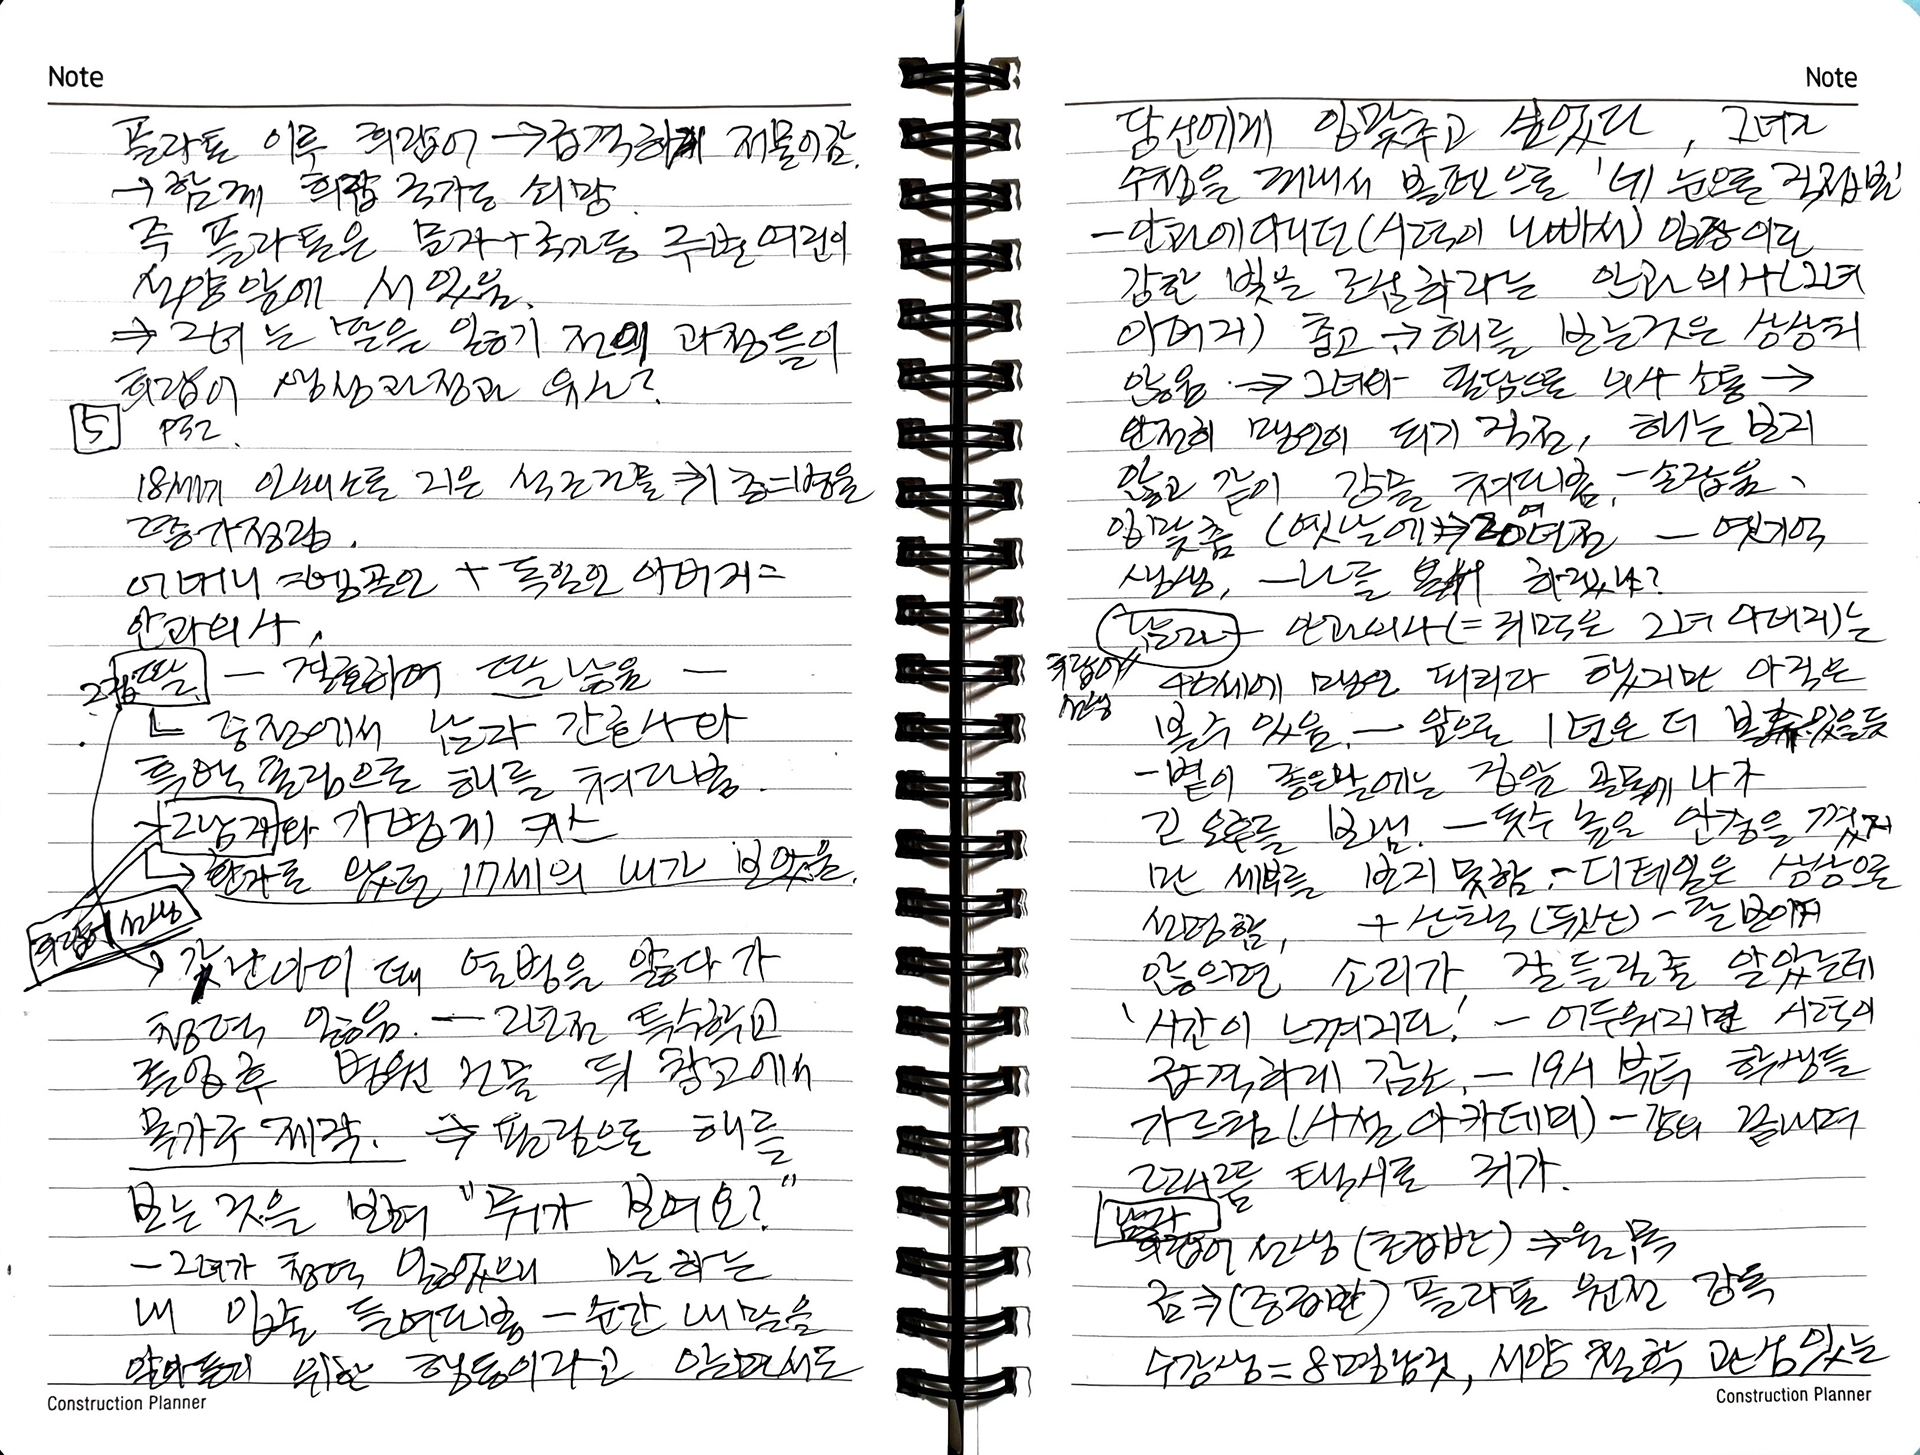 Note
플라톤 이후 희랍어 → 급격하게 저물어감.
→ 함께 희랍 국가는 쇠망.
즉 플라톤은 문자+국가등 주변 여린이
석양앞에 서 있음.
⇒ 그녀는 말을 잃기 전의 과정들이
희랍어 생성과정과 유사?
5 P32.
18세기 인쇄소로 지은 석조건물 귀 중의병을
어머니 + 독일인 아버지=
안과의사,
딸 — 결혼하여 딸 낳음 —
└ 중정에서 남자 간호사와
흑백필림으로 해를 쳐다봄.
그남자와 가볍게 키스
→ 환자로 있던 17세의 내가 보았음.
희랍어 선생
→ 갓난아이 때 열병을 앓다가
청력 잃음. — 2년전 특수학교
졸업후 병원 건물 뒤 창고에서
목가구 제작. ⇒ 필림으로 해를
보는것을 보며 "뭐가 보여요?"
— 그녀가 청력 잃었으며 말하는
내 입술 들여다봄 — 순간 내 말을
알아듣기 위한 행동이라고 알면서도
Construction Planner
Note
당신에게 입맞추고 싶었다, 그녀가
수첩을 꺼내서 볼펜으로 '네 눈으로 직접봐'
— 안과에 다니던 (시력이 나빠서) 입장이라
강한 빛을 조심하라는 안과 의사(그녀
아버지) 충고 → 해를 보는것은 상상되
않음 ⇒ 그녀와 필담으로 의사 소통 →
완전히 맹인이 되기 직전, 해는 보지
않고 같이 강물 쳐다봄. — 손잡음.
입맞춤 (옛날에 ⇒ 20여년전 — 옛기억
생생, — 나를 용서 하겠나?
남자 — 안과의사(= 귀먹은 그녀 아버지)는
희랍어 선생
40세에 맹인 되리라 했지만 아직은
볼수 있음. — 앞으로 1년은 더 볼수 있을듯
— 볕이 좋은날에는 집앞 골목에 나가
긴 오후를 보냄. — 돗수 높은 안경을 꼈지
만 세부를 보지못함 — 디테일은 상상으로
선명함, + 산책 (뒷산) — 잘 보이지
않으면 소리가 잘 들릴줄 알았는데
'시간이 느껴지다.' — 어두워지면 시력이
급격하게 감소. — 19시 부터 학생들
가르침 (사설 아카데미) — 강의 끝내며
22시쯤 택시로 귀가.
남자
희랍어 선생 (초급반) ⇒ 월, 목
금 ⇒ (중급반) 플라톤 원전 강독
수강생 = 8명남짓, 서양 철학 관심있는
Construction Planner